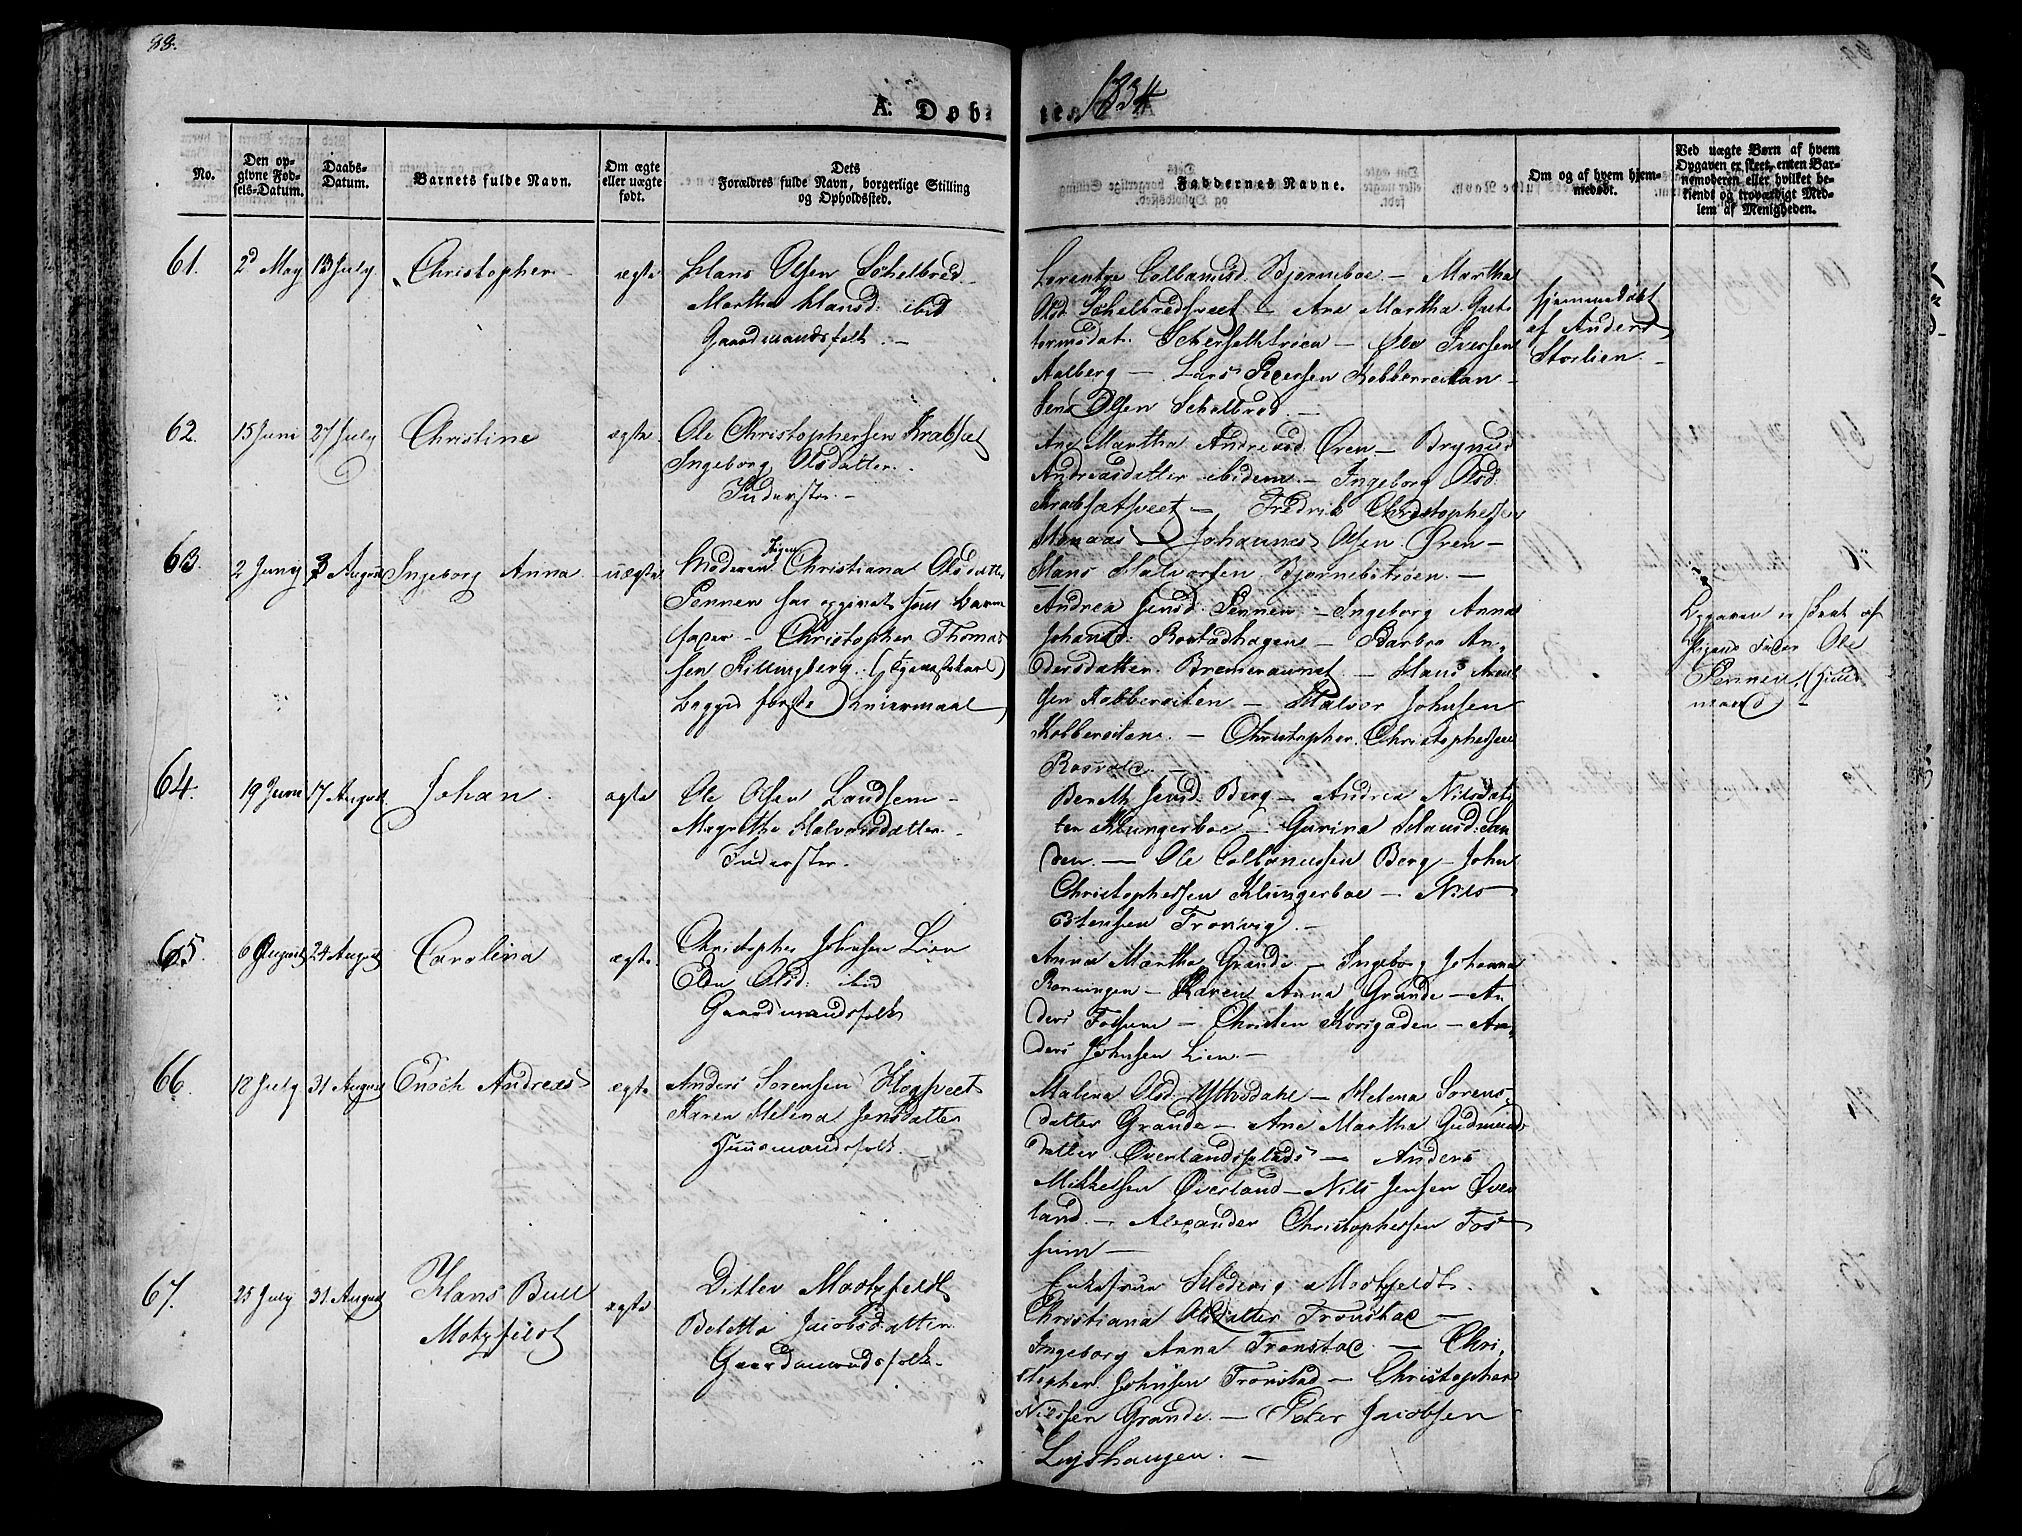 88.
1834
A. Døbte
No.
Den opgivne Fødsels-Datum.
Daabs-Datum.
Barnets fulde Navn.
Om ægte eller uægte født.
Dets Forældres fulde Navn, borgerlige Stilling og Opholdssted.
Faddernes Navne.
Om og af hvem hjemmedøbt.
Ved uægte Børn af hvem Opgaven er skeet, enten Barnemoderen eller hvilket bekiendt og troværdigt Medlem af Menigheden.
61.
2d May
13 July
Christopher
ægte
Hans Olsen Schelbred
Martha Hansd: ibid
Gaardmandsfolk. -
Lorentze Colbanusd Bjørneboe - Martha
Olsd Schelbredsveet - Ane Martha
- Ole Iversen
Aalberg - Lars Pedersen
Jens Olsen Schelbred -
hjemmedøbt
af Anders
Storlien. -
62.
15 Juni
27 July
Christine
ægte
Ole Christophersen Krabsæt
Ingeborg Olsdatter.
Inderster. -
Ane Martha Andreasd Øren -
Andreasdatter ibidem - Ingeborg Olsd.
Krabsætsveet - Fredrik Christophersen
Stenaas - Johannes Olsen Øren -
Hans Halvorsen Bjørnebstrøen. -
63.
2 Juny
3 August
Ingeborg Anna
uægte
Moderen Pigen Christiana Olsdatter
Pennen har opgivet som Barne
fader - Christopher Thomas
sen Killingberg. (Tjenestekarl)
begges første Leiermaal
Andrea Jensd. Pennen - Ingeborg Anna
Johansd: Rostadhagen - Barbro An-
dersdatter - Hans
- Halvor Johnsen
- Christopher Christophersen
Opgaven er skeet af
Pigens Fader Ole
Pennen, (Huus
mand) -
64.
19 Juni
17 August
Johan.
ægte
Ole Olsen Landsem -
Magrethe Halvorsdatter -
Inderster.
Bereth Jensd. Berg - Andrea Nilsdat
ter Klungerboe - Gurina Hansd: San
den. - Ole Colbanussen Berg - John
Christophersen Klungerboe - Nils
Estensen Tronvig. -
65.
6 August
24 August
Carolina
ægte
Christopher Johnsen Lien
Elen Olsd: ibid
Gaardmandsfolk
Anna Martha Grande - Ingeborg Johanna
Ronningen - Karen Anna Grande - An
ders Fossum - Christen Korsgaden - An
ders Johnsen Lien. -
66
18 July
31 August
Enoch Andreas
ægte
Anders Sørensen
Karen Helena Jensdatter
Huusmandsfolk. -
Malena Olsd. Ytterdahl - Helena Sørens-
datter Grande - Ane Martha Gudmund
datter Overlandsplads - Anders
Mikkelsen Overland - Nils Jensen Over
land. - Alexander Christophersen Fos
sum -
67.
25 July
31 August
Hans Bull
Motzfeldt
ægte
Ditlev Motzfeldt
Beletta Jacobsdatter
Gaardmandsfolk -
Enkefrue Hedevig Motzfeldt.
Christiana Olsdatter Tronstad -
Ingeborg Anna Tronstad - Chri-
stopher Johnsen Tronstad - Christopher
Nilssen Grande. - Peter Jacobsen
Lyshaugen. -